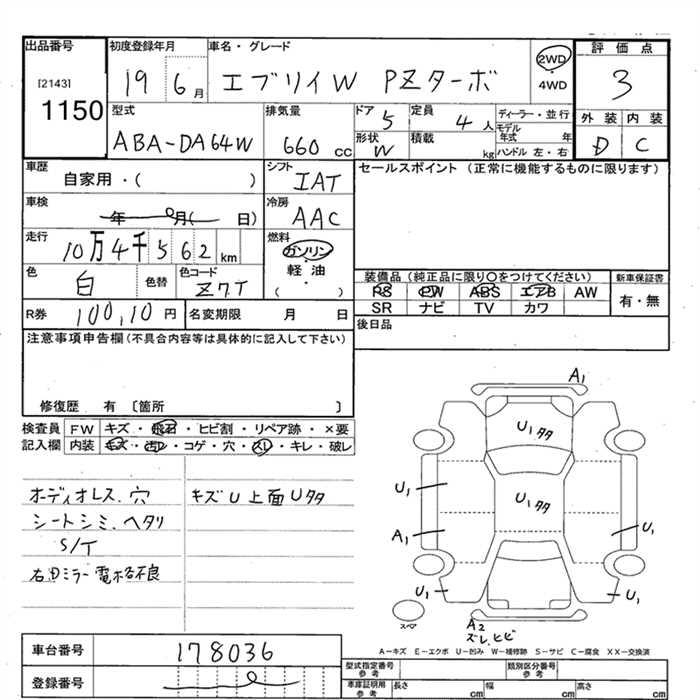 出品番号
[2143]
1150
初度登録年月
19 6月
車名・グレード
エブリイW PZターボ
2WD
4WD
評価点
3
外装 内装
D C
型式
ABA-DA64W
排気量
660 cc
ドア
5
形状
W
定員
4人
積載
kg
ディーラー・並行
モデル年式 年
ハンドル 左・右
車歴
自家用・( )
シフト
IAT
セールスポイント (正常に機能するものに限ります)
車検
年 月( 日)
冷房
AAC
走行
10万4千562km
燃料
ガソリン
・
軽油
( )
色
白
色替
色コード
Z7T
装備品 (純正品に限り○をつけてください)
RS PW ABS エアB AW
SR ナビ TV カワ
新車保証書
有・無
R券
100,10円
名変期限 月 日
後日品
注意事項申告欄(不具合内容等は具体的に記入して下さい)
修復歴 有 〔箇所 〕
検査員記入欄
FW キズ・飛石・ヒビ割・リペア跡・×要
内装 キズ・汚レ・コゲ・穴・スレ・キレ・破レ
オーディオレス、穴
シートシミ、ヘタリ
S/T
右Dミラー電格不良
キズU 上面Uタタ
A1
U1タタ
U1
U1タタ
A1
U1
U1
U1
A2
ズレ、ヒビ
スペア
A-キズ E-エクボ U-凹み W-補修跡 S-サビ C-腐食 XX-交換済
車台番号
178036
登録番号
型式指定番号
参考
類別区分番号
参考
車庫証明用
参考
長さ cm
幅 cm
高さ cm